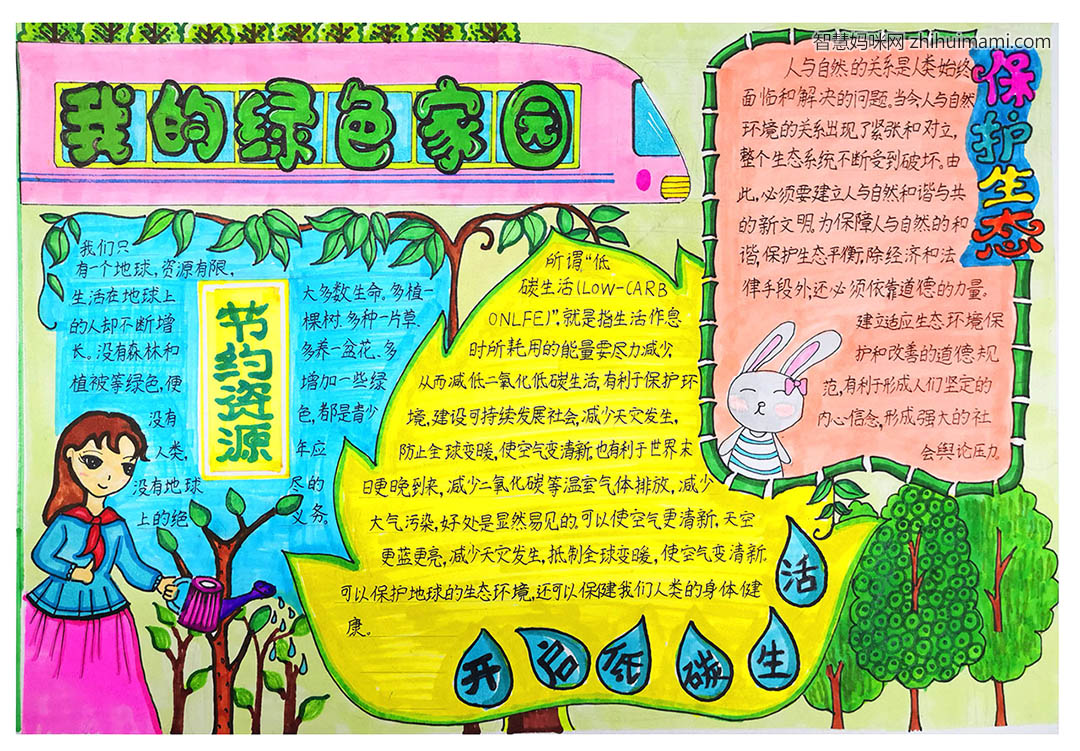 智慧妈咪网 zhihuimami.com
我的绿色家园
我们只
有一个地球,资源有限,
生活在地球上
的人却不断增
长。没有森林和
植被等绿色,便
没有
人类,
没有地球
上的绝
节约资源
大多数生命。多植一
棵树.多种一片草.
多养一盆花、多
增加一些绿
色,都是青少
年应
尽的
义务。
所谓“低
碳生活(LOW-CARB
ONLFEJ)”,就是指生活作息
时所耗用的能量要尽力减少,
从而减低二氧化低碳生活,有利于保护环
境,建设可持续发展社会,减少天灾发生,
防止全球变暖,使空气变清新.也有利于世界末
日更晚到来,减少二氧化碳等温室气体排放,减少
大气污染,好处是显然易见的,可以使空气更清新,天空
更蓝更亮,减少天灾发生,抵制全球变暖,使空气变清新.
可以保护地球的生态环境,还可以保健我们人类的身体健
康。
开启低碳生活
保护生态
人与自然的关系是人类始终
面临和解决的问题。当今人与自然
环境的关系出现了紧张和对立,
整个生态系统不断受到破坏。由
此,必须要建立人与自然和谐与共
的新文明,为保障人与自然的和
谐,保护生态平衡,除经济和法
律手段外,还必须依靠道德的力量。
建立适应生态环境保
护和改善的道德规
范,有利于形成人们坚定的
内心信念,形成强大的社
会舆论压力.